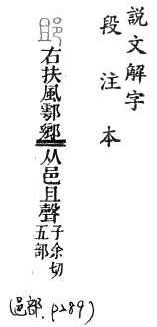 說文解字
段注本
右扶風鄠鄉从邑且聲子余切五部
(邑部. p289)